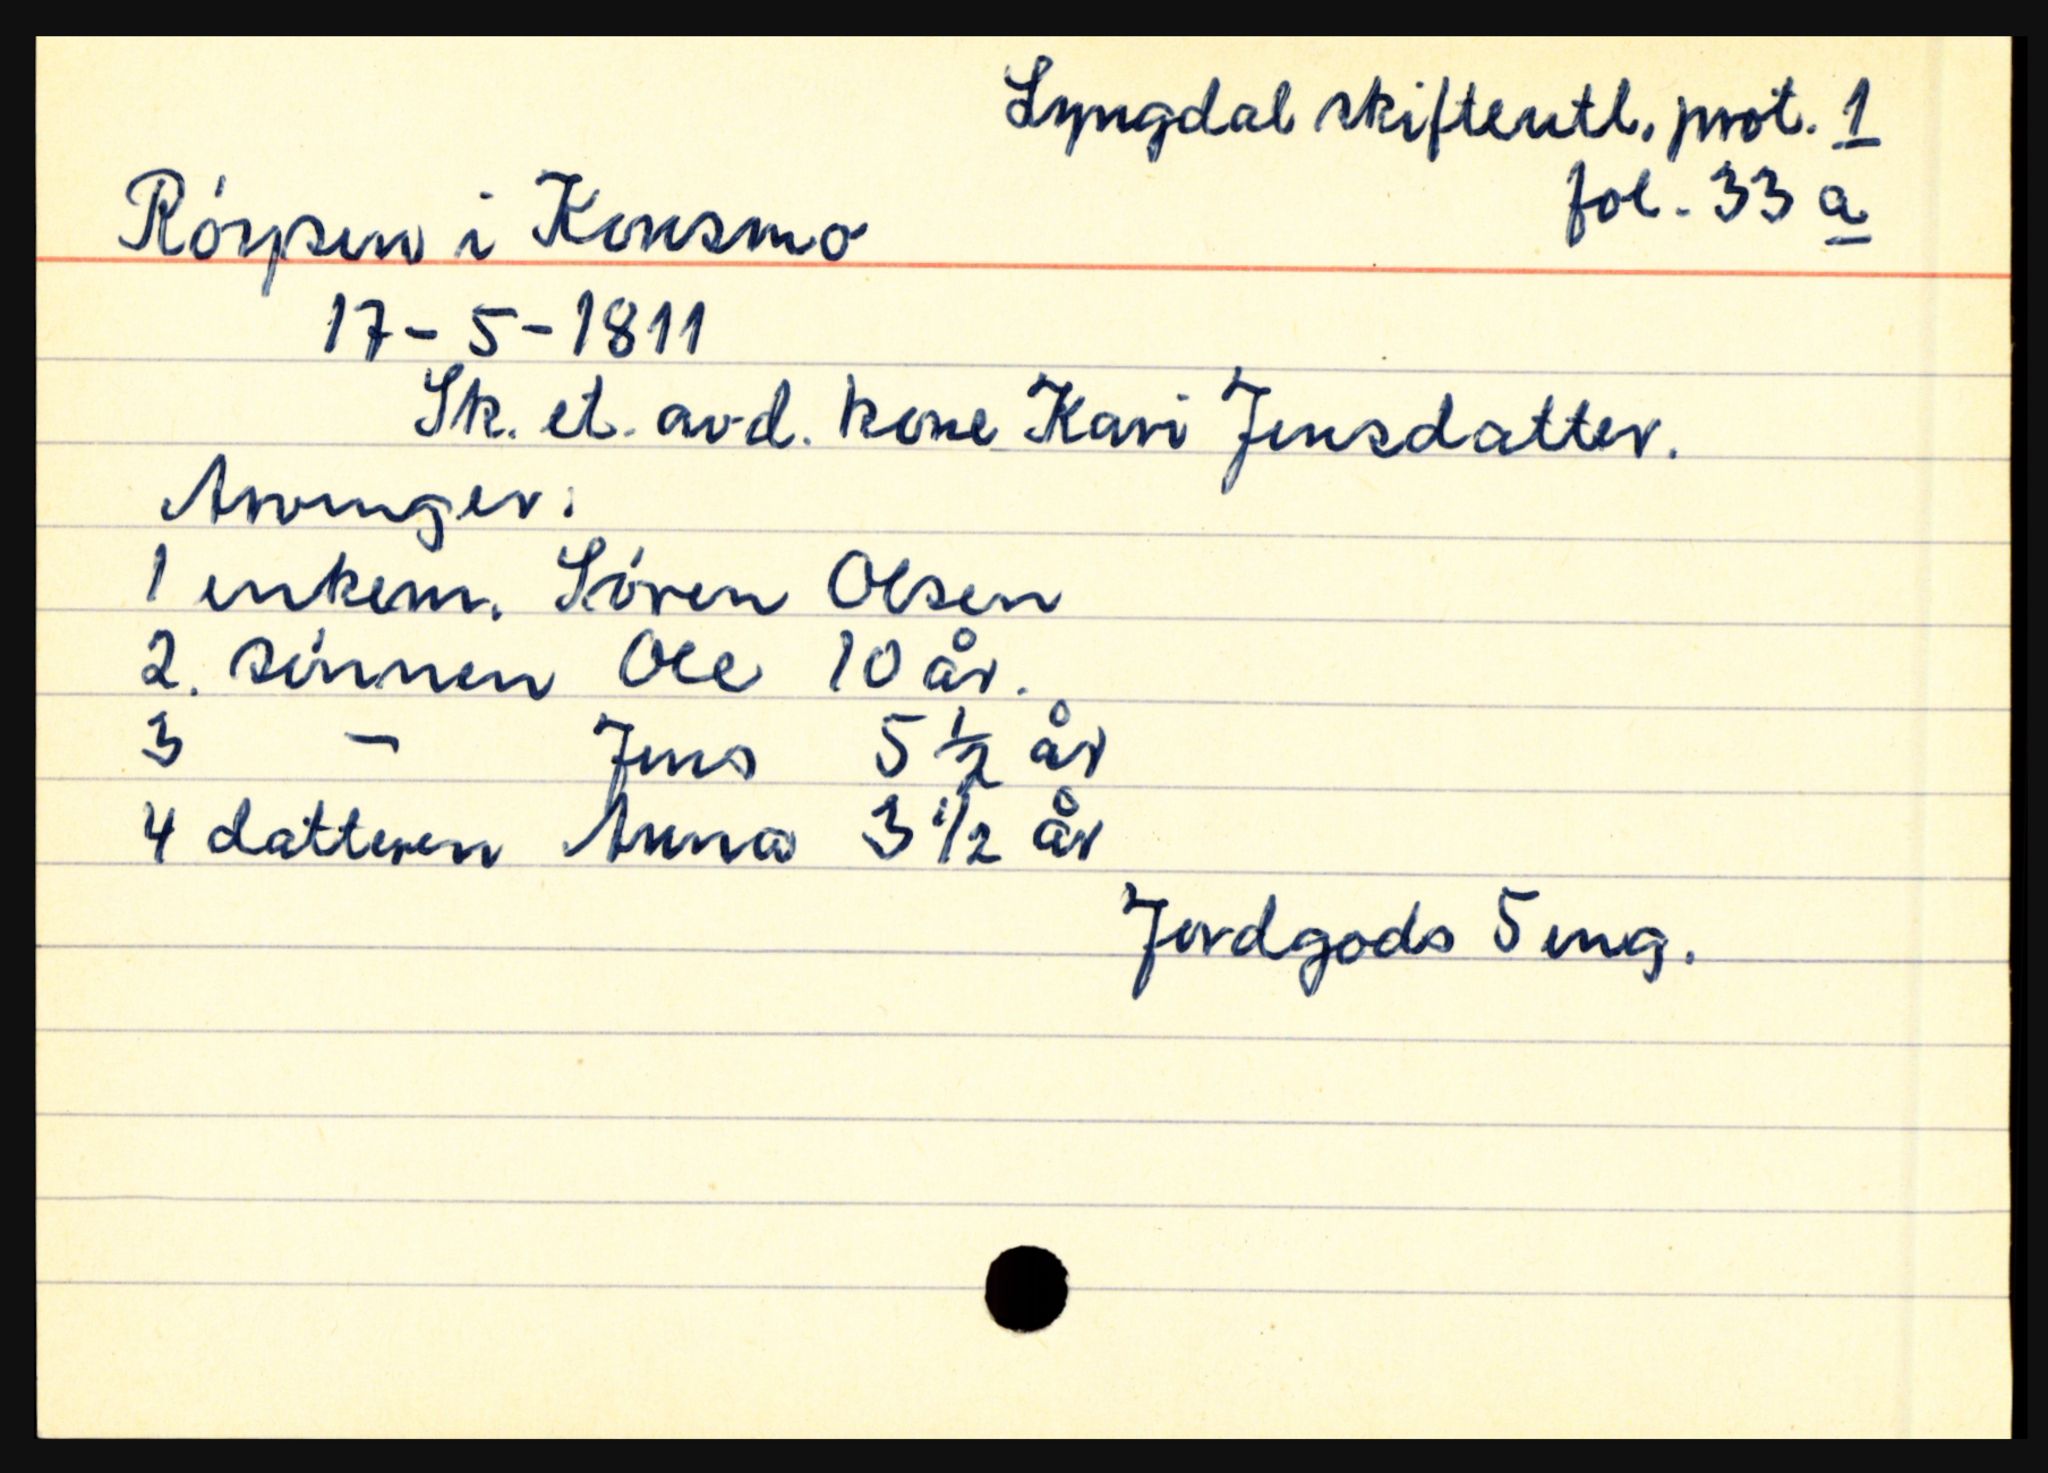 Lyngdal skifteutl. prot. 1
fol. 33 a
Rørpsen i Konsmo
17-5-1811
Sk. et. avd. kone Kari Jensdatter.
Arvinger:
1 enkem. Søren Olsen
2. sønnen Ole 10 år.
3 - Jens 5 1/2 år
4 datteren Anna 3 1/2 år
Jordgods 5 eng.